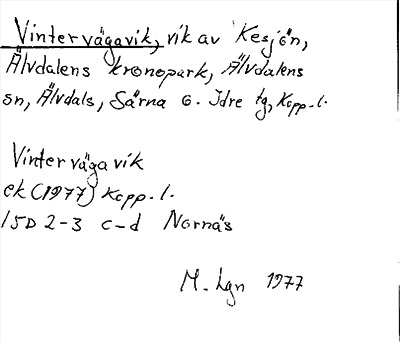 Vintervägavik, vik av Kesjön,
Älvdalens kronopark, Älvdalens
sn, Älvdals, Särna o. Idre tg, Kopp.l.
Vintervägavik
ek (1977) Kopp.l.
15D 2-3 c-d Nornäs
M. Lgn 1977